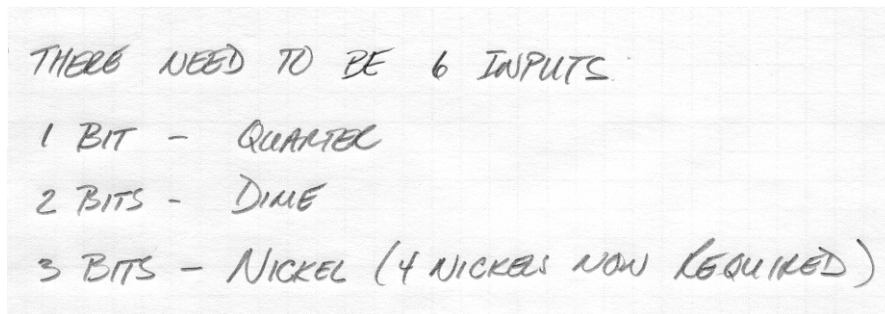 THERE NEED TO BE 6 INPUTS.
1 BIT - QUARTER
2 BITS - DIME
3 BITS - NICKEL (4 NICKELS NOW REQUIRED)